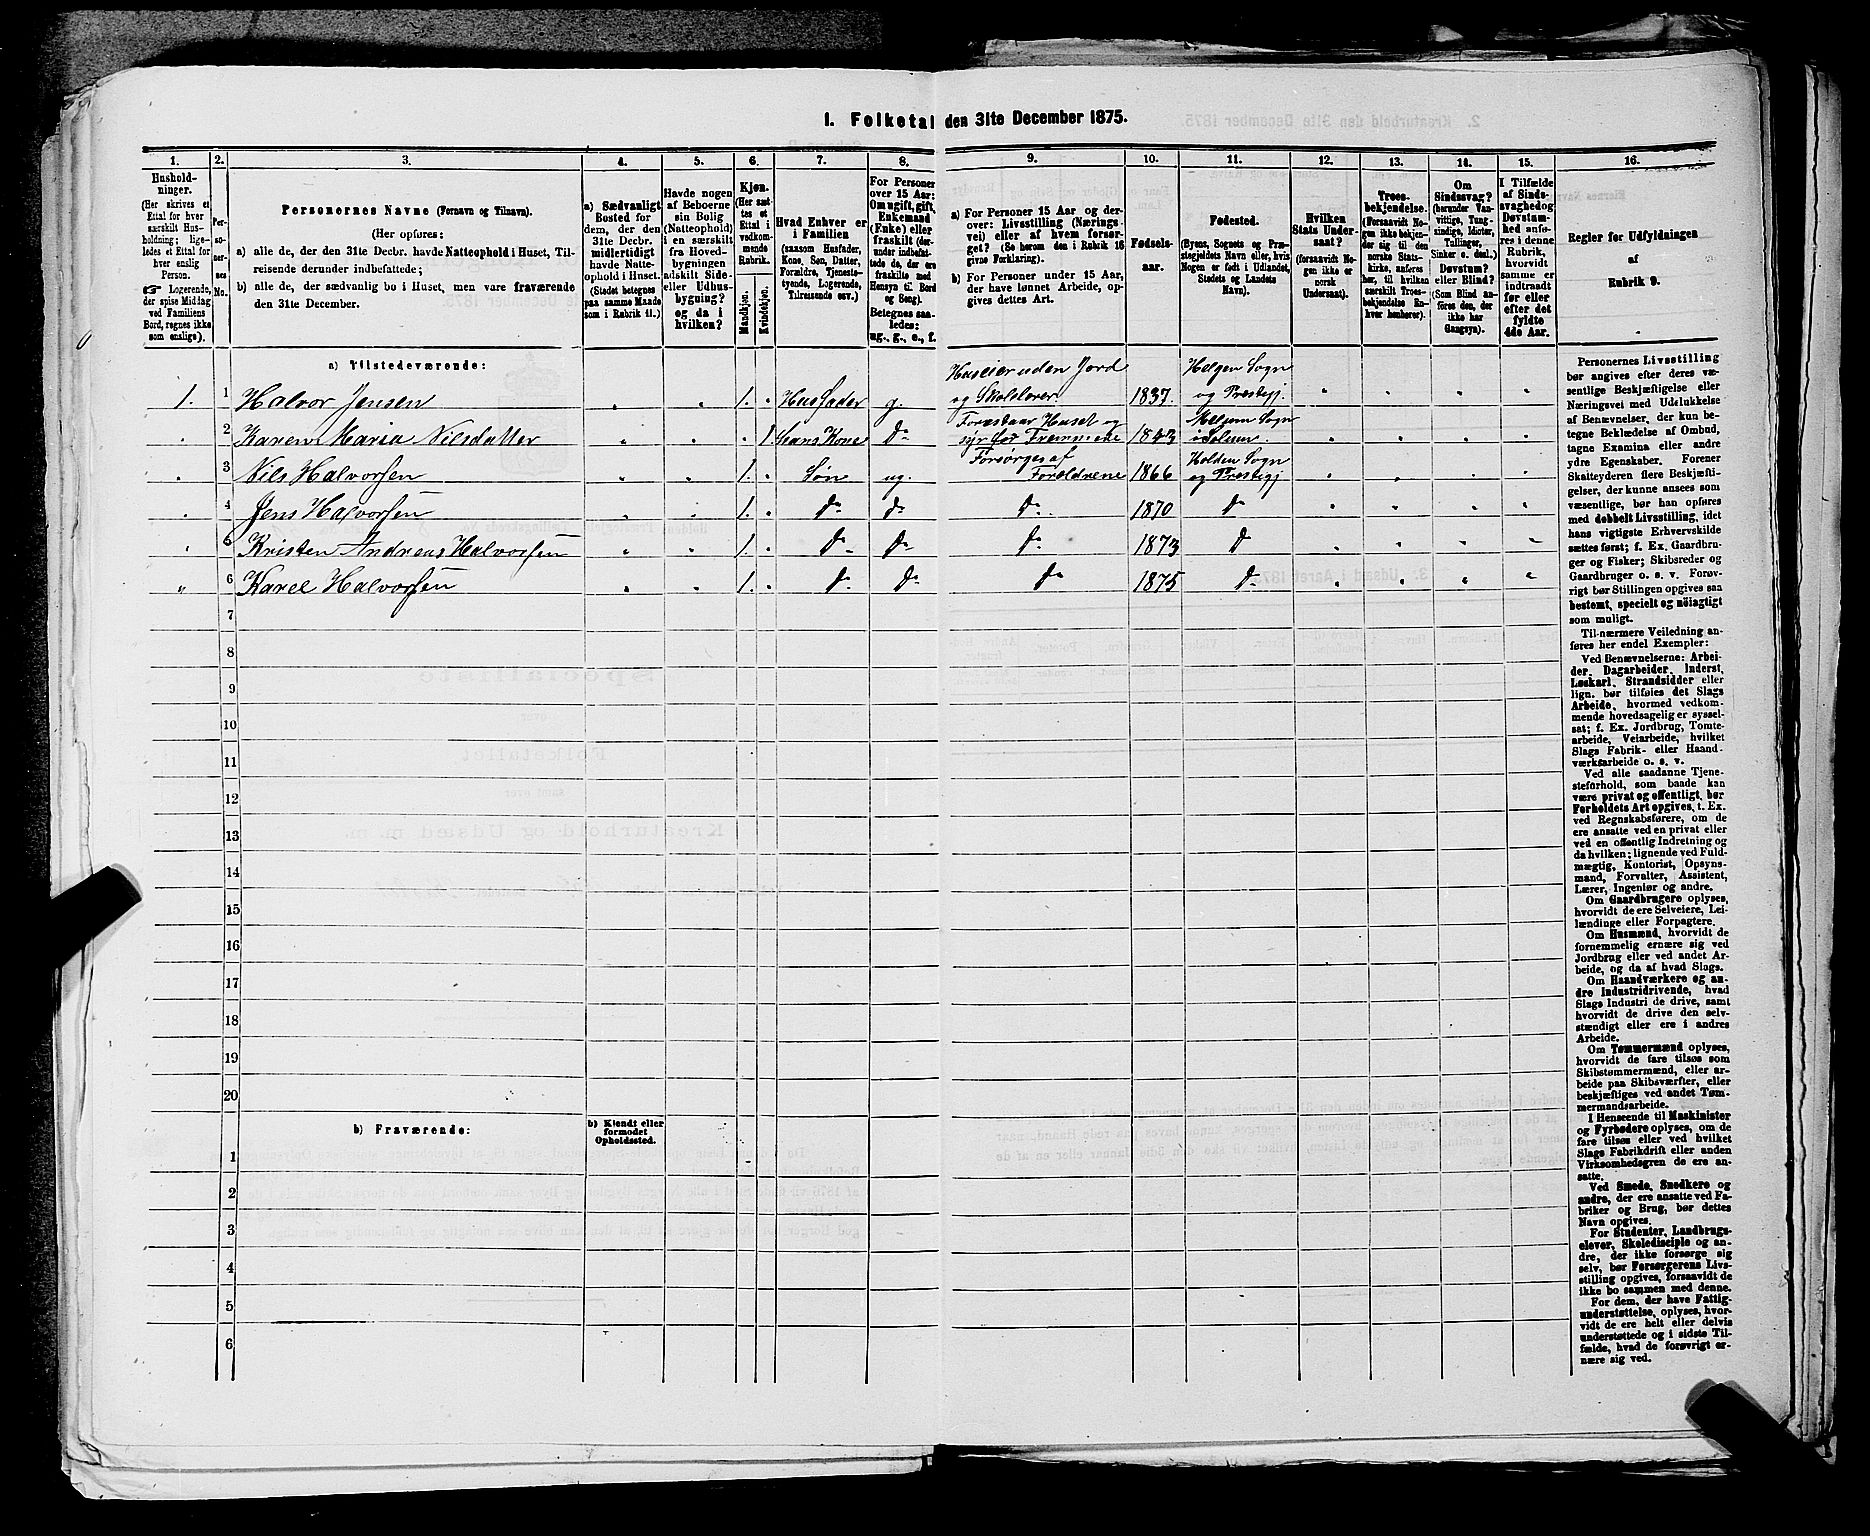 I. Folketal den 31te December 1875.
1. 2. 3. 4. 5. 6. 7. 8. 9. 10. 11. 12. 13. 14. 15. 16.
Hushold-
ninger.
(Her skrives et
Ettal for hver
særskilt Hus-
holdning; lige-
ledes et Ettal for
hver enslig
Person.
☞ Logerende,
der spise Middag
ved Familiens
Bord, regnes ikke
som enslige).
Per-
so-
ner-
nes
No.
Personernes Navne (Fornavn og Tilnavn).
(Her opføres:
a) alle de, der den 31te Decbr. havde Natteophold i Huset, Til-
reisende derunder indbefattede;
b) alle de, der sædvanlig bo i Huset, men vare fraværende
den 31te December.
a) Sædvanligt
Bosted for
dem, der den
31te Decbr.
midlertidigt
havde Natte-
ophold i Huset.
(Stedet betegnes
paa samme Maade
som i Rubrik 11.)
Havde nogen
af Beboerne
sin Bolig
(Natteophold)
i en særskilt
fra Hoved-
bygningen
adskilt Side-
eller Udhus-
bygning?
og da i
hvilken?
Kjøn.
(Her sæt-
tes et
Ettal i
vedkom-
mende
Rubrik.
Mandkjøn.
Kvindekjøn.
Hvad Enhver er
i Familien
(saasom Husfader,
Kone, Søn, Datter,
Forældre, Tjeneste-
tyende, Logerende,
Tilreisende osv.)
For Personer
over 15 Aar:
Om ugift, gift,
Enkemand
(Enke) eller
fraskilt (der-
under indbefat-
tede de, der ere
fraskilte med
Hensyn til Bord
og Seng).
Betegnes saa-
ledes:
ug., g., e., f.
a) For Personer 15 Aar og der-
over: Livsstilling (Nærings-
vei) eller af hvem forsør-
get? (Se herom den i Rubrik 16
givne Forklaring).
b) For Personer under 15 Aar,
der have lønnet Arbeide, op-
gives dettes Art.
Fødsels-
aar.
Fødested.
(Byens, Sognets og Præ-
stegjeldets Navn eller, hvis
Nogen er født i Udlandet,
Stedets og Landets
Navn).
Hvilken
Stats Under-
saat?
(forsaavidt No-
gen ikke er
norsk
Undersaat).
Troes-
bekjendelse.
(Forsaavidt No-
gen ikke bekjen-
der sig til den
norske Stats-
kirke, anføres
her, til hvilken
særskilt Troes-
bekjendelse En-
hver henhører).
Om
Sindssvag?
(herunder Van-
vittige, Tung-
sindige, Idioter,
Tullinger,
Sinker o. desl.)
Døvstum?
eller Blind?
(Som Blind an-
føres den, der
ikke har
Gangsyn).
I Tilfælde
af Sinds-
svaghed og
Døvstum-
hed anfø-
res i denne
Rubrik,
hvorvidt
samme er
indtraadt
før eller
efter det
fyldte
4de Aar.
Regler for Udfyldningen
af
Rubrik 9.
a) Tilstedeværende:
1. 1 Halvor Jensen 1. Husfader g. Huseier uden Jord og Skolelærer 1837. Helgen Sogn og Prestegj.
2 Karen Maria Nilsdatter 1. Hans Kone do Forestaar Huset og syr for Fremmede 1843 Melum Sogn i Solum.
3 Nils Halvorsen 1. Søn ug. Forsørges af Forældrene 1866 Holden Sogn og Prestegj
4 Jens Halvorsen 1. do do do 1870 do
5 Kristen Andreas Halvorsen 1. do do do 1873 do
6 Karel Halvorsen 1. do do do 1875 do
7
8
9
10
11
12
13
14
15
16
17
18
19
20
b) Fraværende:
b) Kjendt eller
formodet
Opholdssted.
1
2
3
4
5
6
Personernes Livsstilling
bør angives efter deres væ-
sentlige Beskjæftigelse eller
Næringsvei med Udelukkelse
af Benævnelser, der kun be-
tegne Beklædelse af Ombud,
tagne Examina eller andre
ydre Egenskaber. Forener
Skatteyderen flere Beskjæfti-
gelser, der kunne ansees som
væsentlige, bør han opføres
med dobbelt Livsstilling, idet
hans vigtigste Erhvervskilde
sættes først; f. Ex. Gaardbru-
ger og Fisker; Skibsreder og
Gaardbruger o. s. v. Forøv-
rigt bør Stillingen opgives saa
bestemt, specielt og nøiagtigt
som muligt.
Til nærmere Veiledning an-
føres her endel Exempler:
Ved Benævnelserne: Arbei-
der, Dagarbeider, Inderst,
Løskarl, Strandsidder eller
lign. bør tilføies det Slags
Arbeide, hvormed vedkom-
mende hovedsagelig er syssel-
sat; f. Ex. Jordbrug, Tomte-
arbeide, Veiarbeide, hvilket
Slags Fabrik- eller Haand-
værksarbeide o. s. v.
Ved alle saadanne Tjene-
steforhold, som baade kan
være privat og offentligt, bør
Forholdets Art opgives, t. Ex.
ved Regnskabsførere, om de
ere ansatte ved en privat eller
ved en offentlig Indretning og
da hvilken; lignende ved Fuld-
mægtig, Kontorist, Opsyns-
mand, Forvalter, Assistent,
Lærer, Ingeniør og andre.
Om Gaardbrugere oplyses,
hvorvidt de ere Selveiere, Lei-
lændinge eller Forpagtere.
Om Husmænd, hvorvidt de
fornemmelig ernære sig ved
Jordbrug eller ved andet Ar-
beide, og da af hvad Slags.
Om Haandværkere og an-
dre Industridrivende, hvad
Slags Industri de drive, samt
hvorvidt de drive den selv-
stændigt eller ere i andres
Arbeide.
Om Tømmermænd oplyses,
hvorvidt de fare tilsøs som
Skibstømmermænd, eller ar-
beide paa Skibsværfter, eller
beskjæftiges ved andet Tøm-
mermandsarbeide.
I Henseende til Maskinister
og Fyrbødere oplyses, om de
fare tilsøs eller ved hvilket
Slags Fabrikdrift eller anden
Virksomhedsgren de ere an-
satte.
Ved Smede, Snedkere og
andre, der ere ansatte ved Fa-
briker og Brug, bør dettes
Navn opgives.
For Studenter, Landbrugs-
elever, Skoledisciple og an-
dre, der ikke forsørge sig
selv, bør Forsørgerens Livs-
stilling opgives, forsaavidt de
ikke bo sammen med denne.
For dem, der have Fattig-
understøttelse, oplyses, hvor-
vidt de ere helt eller delvis
understøttede og i sidste Til-
fælde, hvad de forøvrigt er-
nære sig ved.